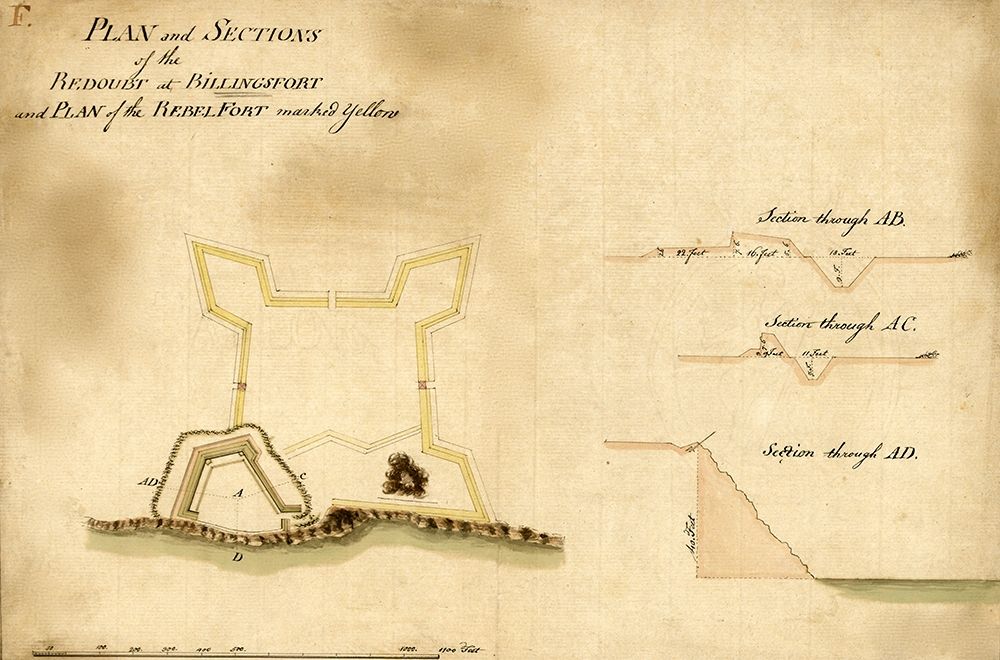 F.
PLAN and SECTIONS
of the
REDOUBT at BILLINGSFORT
and PLAN of the REBEL FORT marked Yellow
Section through AB.
22. feet
16. feet
18. Feet
9. F.
Section through AC.
9 feet
11 Feet
Section through AD.
40. Feet
AD
A
C
D
50
100.
200.
300.
400
500.
1000.
1100 Feet